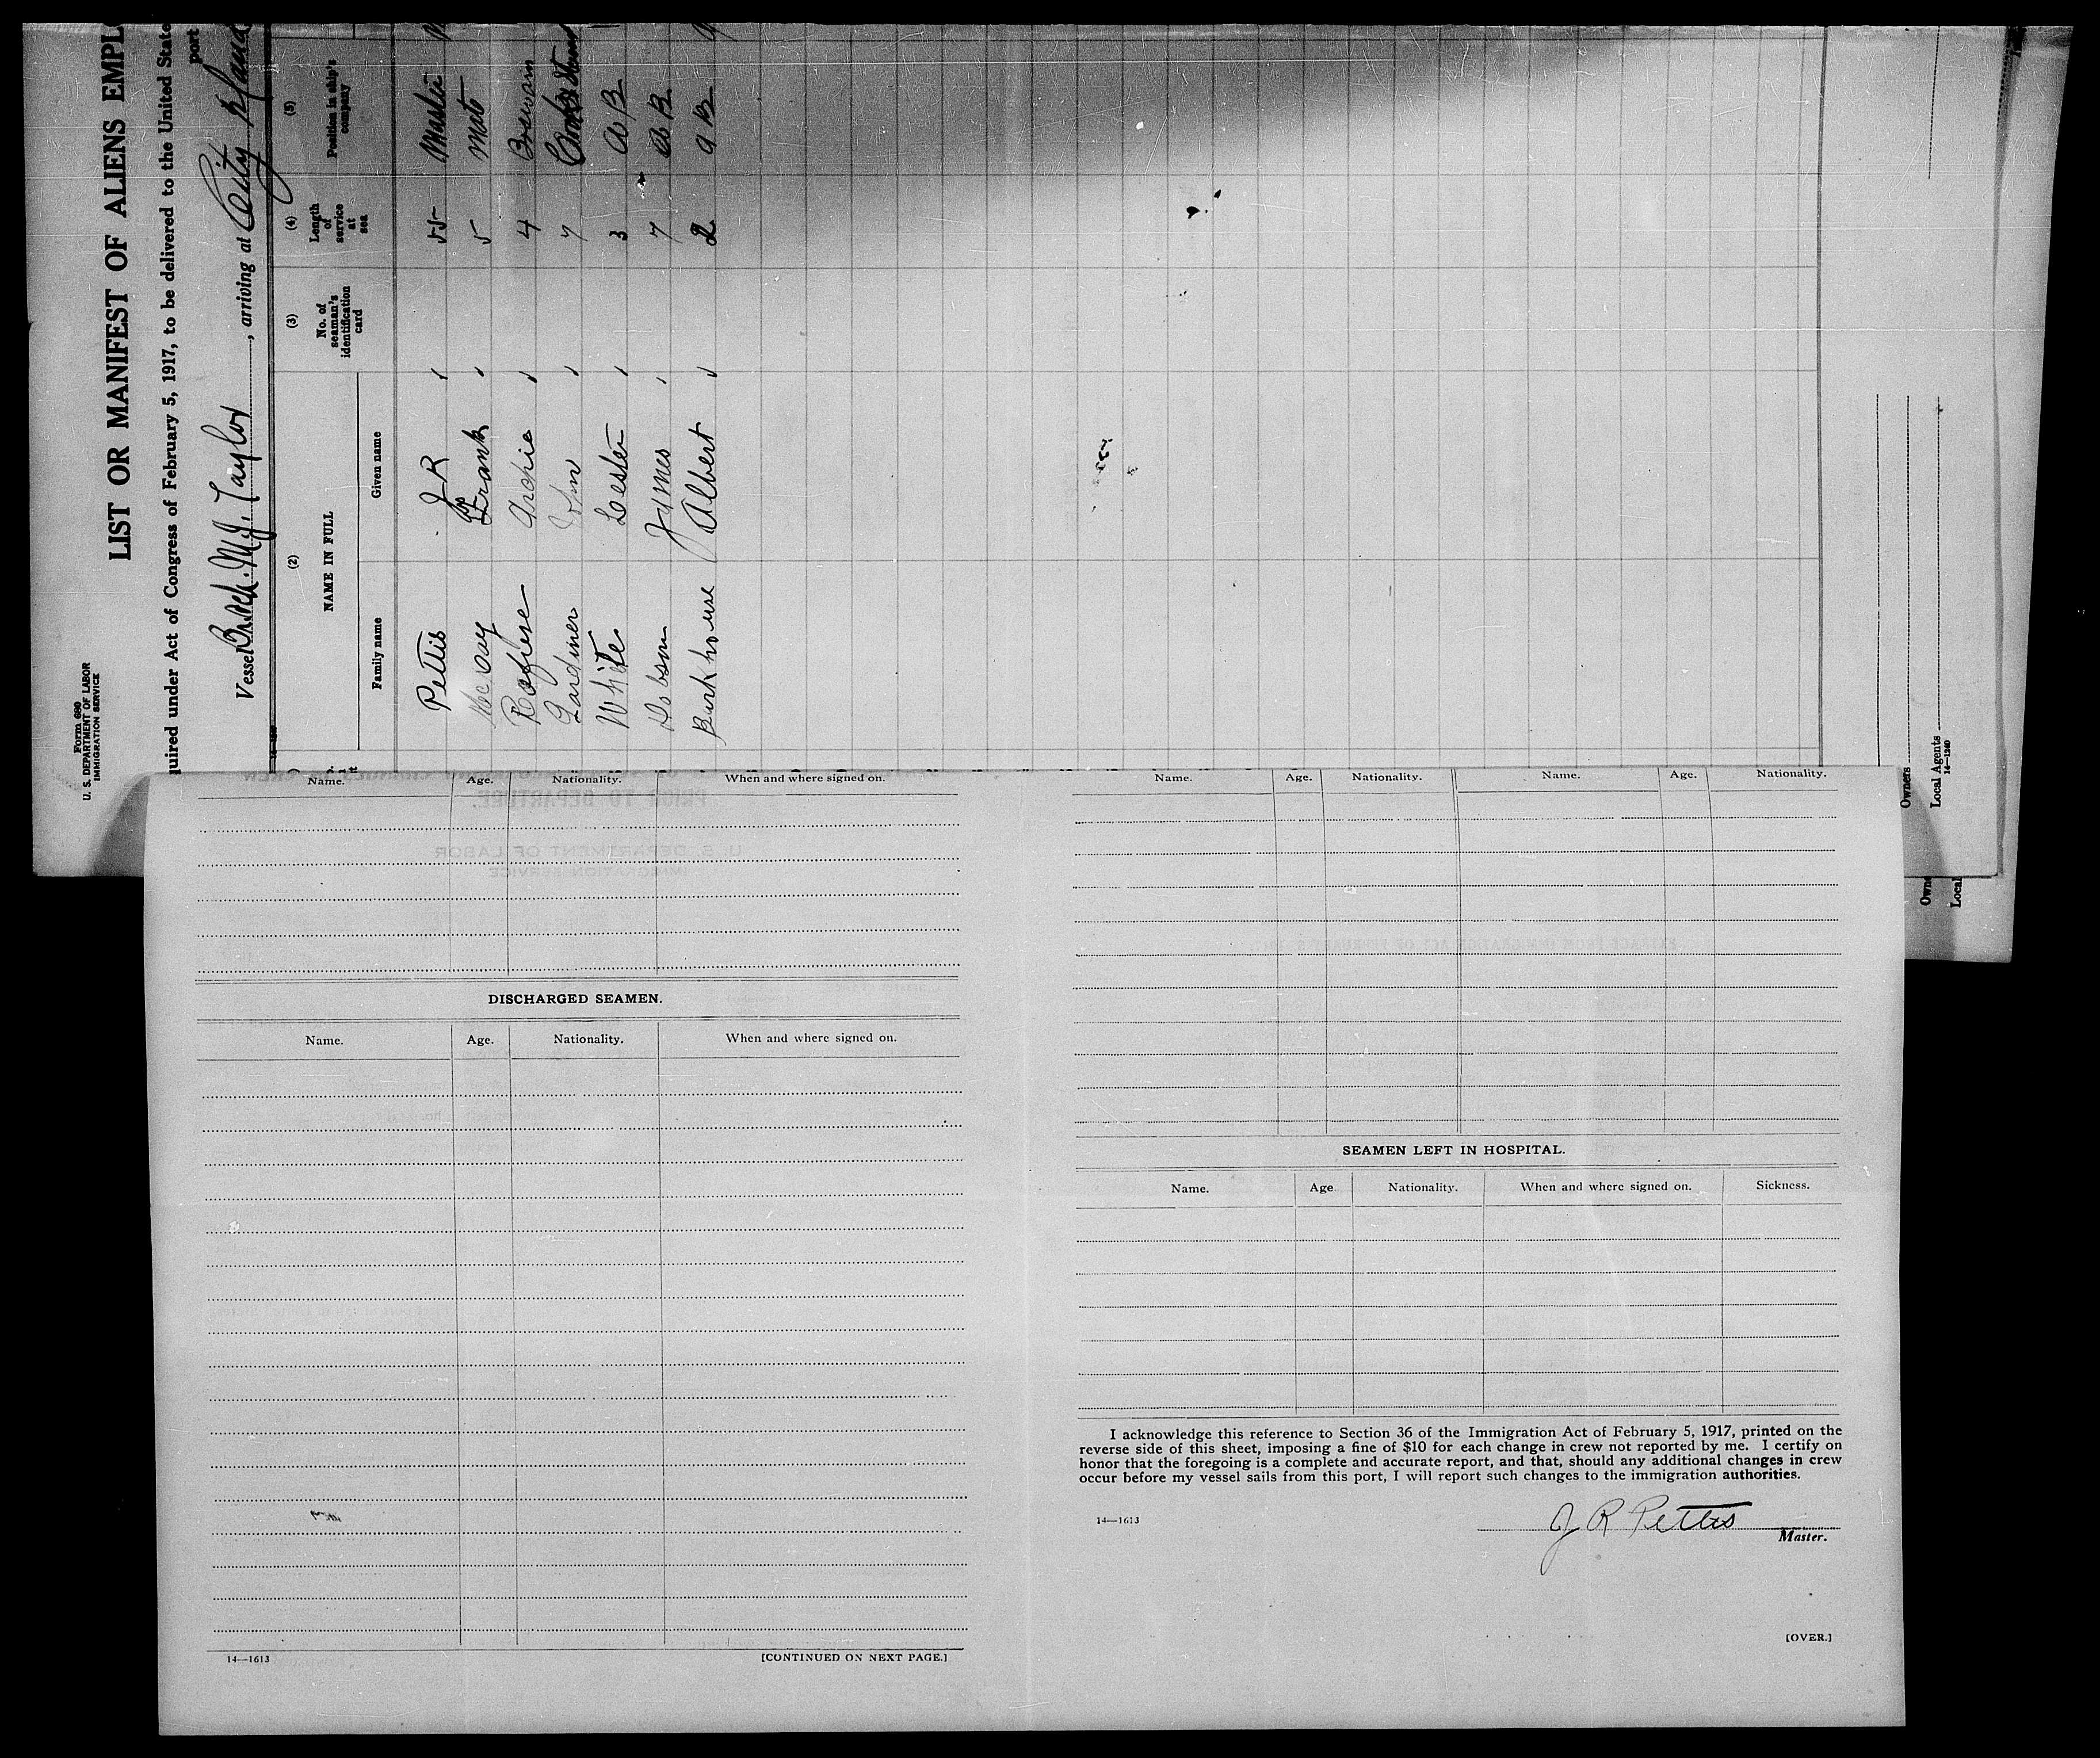 Form 680
U. S. DEPARTMENT OF LABOR
IMMIGRATION SERVICE
LIST OR MANIFEST OF ALIENS EMPL
quired under Act of Congress of February 5, 1917, to be delivered to the United State
port
Vessel M.J. Taylor, arriving at City
(2) (3) (4) (5)
NAME IN FULL
Family name Given name
No. of seaman's identification card
Length of service at sea
Position in ship's company
Pettis J R 55 Master
McCay Frank 5 Mate
Archie 4
Gardiner John 7
White Lester 3 A B
Dobson James 7 A B
Burkhouse Albert 2 A B
Owners
Local Agents
14—1240
Owne
Local
Name. Age. Nationality. When and where signed on.
DISCHARGED SEAMEN.
Name. Age. Nationality. When and where signed on.
14—1613 [CONTINUED ON NEXT PAGE.]
Name. Age. Nationality. Name. Age. Nationality.
SEAMEN LEFT IN HOSPITAL.
Name. Age Nationality. When and where signed on. Sickness.
I acknowledge this reference to Section 36 of the Immigration Act of February 5, 1917, printed on the
reverse side of this sheet, imposing a fine of $10 for each change in crew not reported by me. I certify on
honor that the foregoing is a complete and accurate report, and that, should any additional changes in crew
occur before my vessel sails from this port, I will report such changes to the immigration authorities.
14—1613
J R Pettis
Master.
[OVER.]